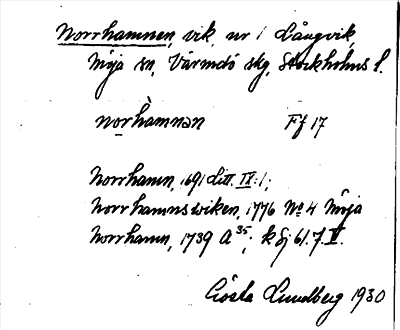 Norrhamnen, vik, nr 1 Långvik,
Möja sn, Värmdö skg, Stockholms l.
norhàmnən Ff 17
Norrhamn, 1691 Litt. IV:1;
Norrhamnswiken, 1776 No 4 Möja
Norrhamn, 1739 A 35; k Sj 61.7.V.
Gösta Lundberg 1930